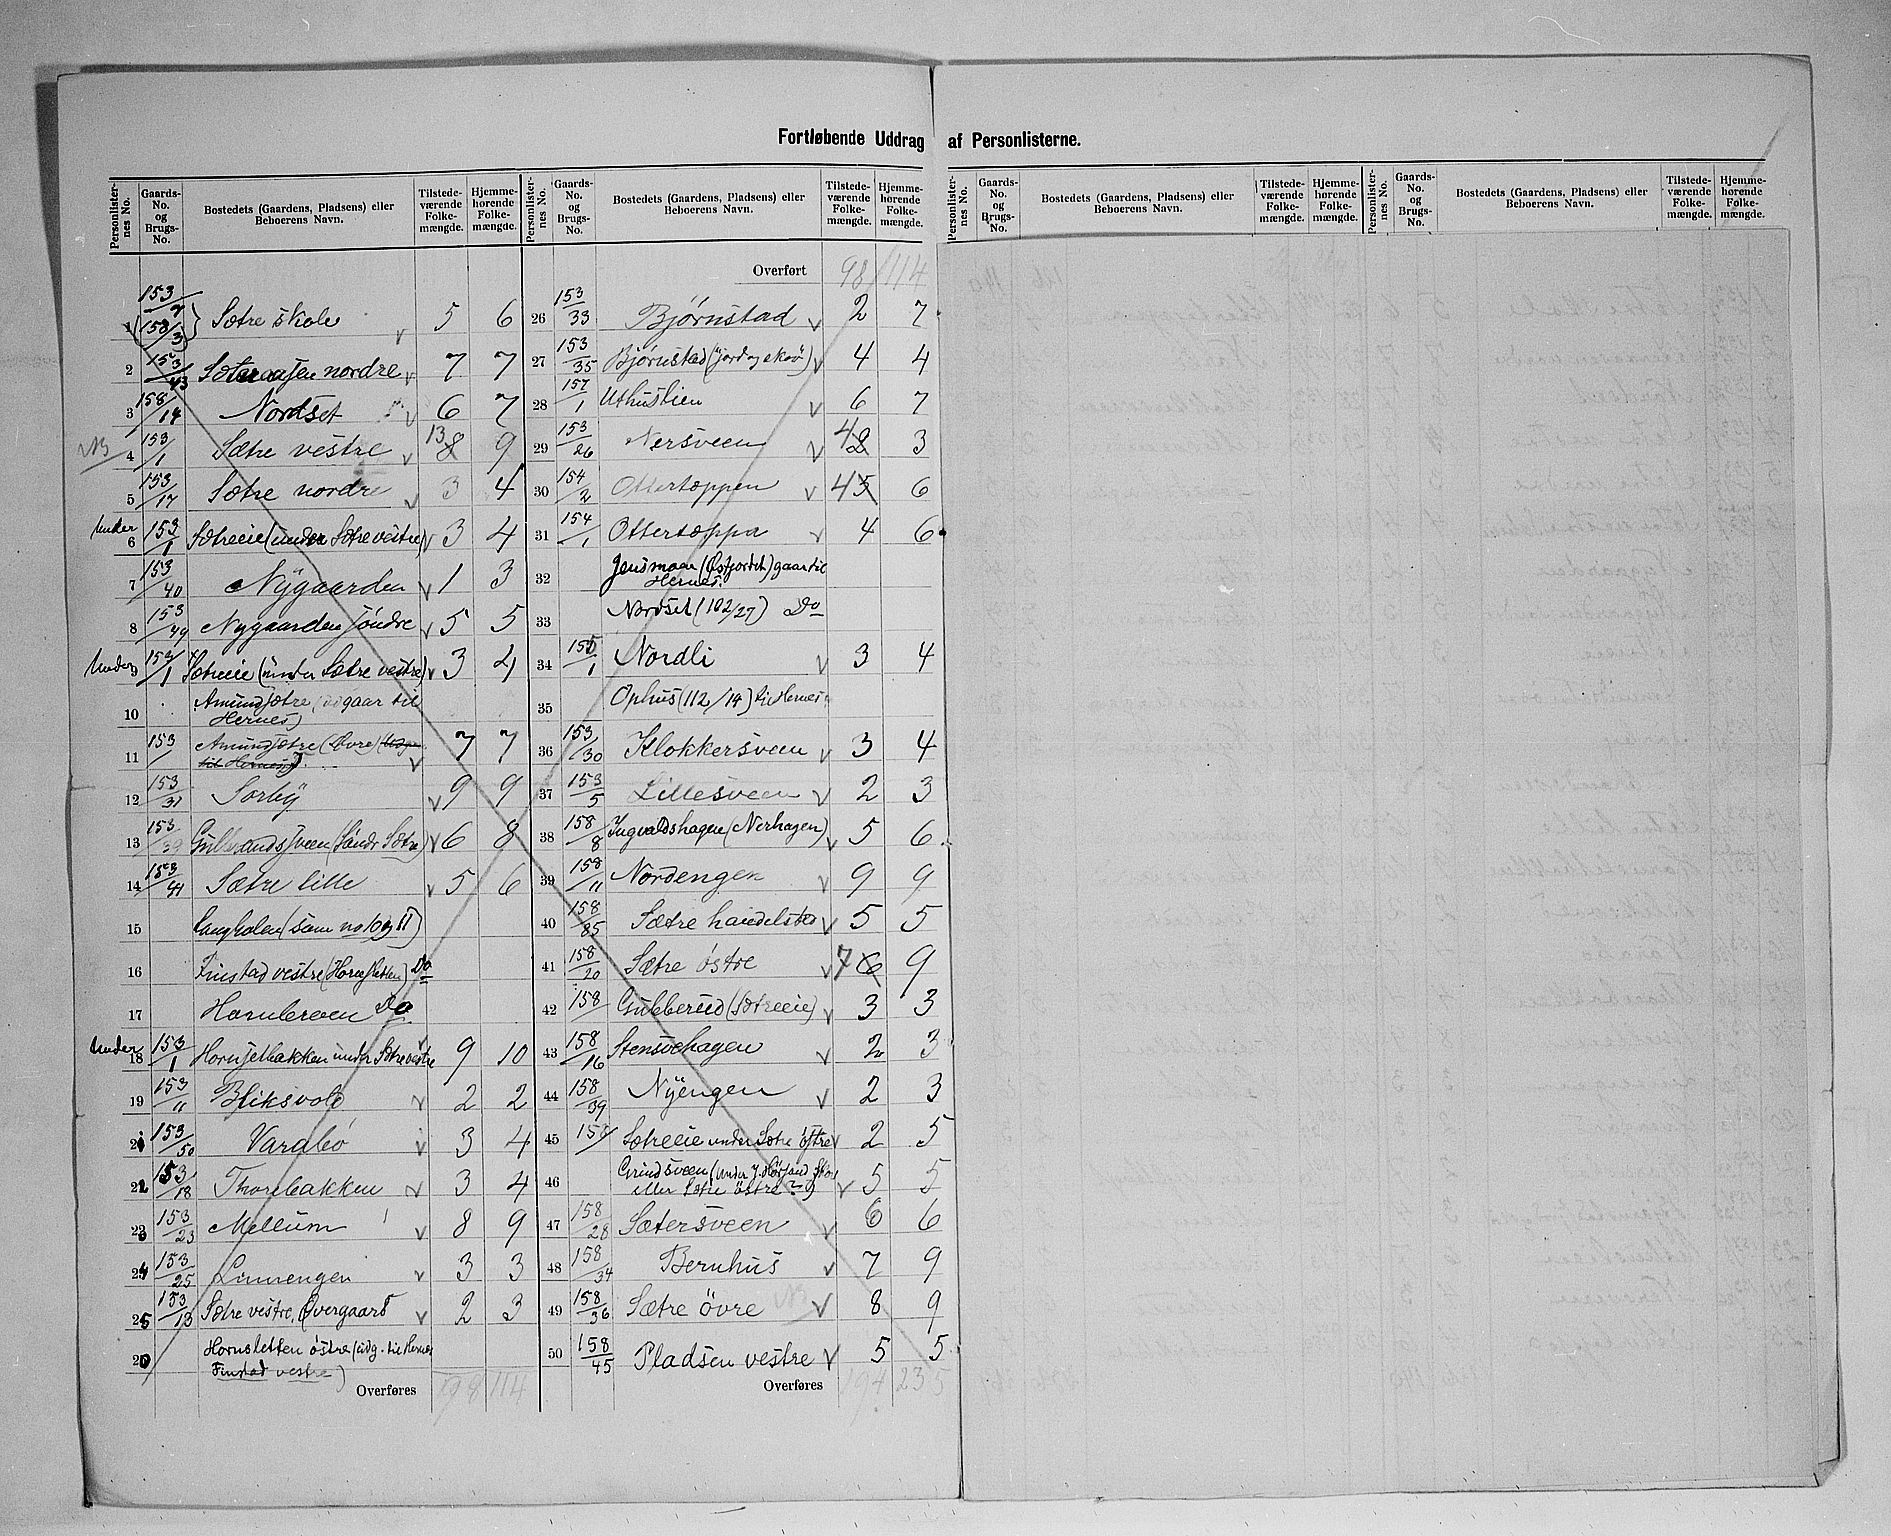 Fortløbende Uddrag af Personlisterne.
Personlister-nes No. Gaards-No. og Brugs-No. Bostedets (Gaardens, Pladsens) eller Beboerens Navn. Tilstede-værende Folke-mængde. Hjemme-hørende Folke-mængde.
1 153/7 (158/3) Sætre skole v 5 6
2 153/43 Sætreaasen nordre v 7 7
3 158/14 Nordset v 6 7
NB 4 153/1 Sætre vestre v 13 8 9
5 153/17 Sætre nordre v 3 4
Under 6 153/1 Sætreeie (under Sætre vestre) v 3 4
7 153/40 Nygaarden v 1 3
8 153/49 Nygaarden søndre v 5 5
Under 9 153/1 Sætreeie (under Sætre vestre) v 3 4
10 Amundsætre (udgaar til
Hernes)
11 153/ Amundsætre (Øvre) (Udgaar
til Hernes) v 7 7
12 153/31 Sørby v 9 9
13 153/39 Gulbrandssveen (Søndr Sætre) v 6 8
14 153/41 Sætre lille v 5 6
15 Langholen (som no 10 og 11)
16 Finstad vestre (Hornsletten) Do
17 Hornleroen Do
Under 18 153/1 Hornsetbakken under Sætre vestre v 9 10
19 153/11 Bliksvold v 2 2
21 153/50 Vardbo v 3 4
22 153/18 Thorebakken v 3 4
23 153/23 Mellum v 8 9
24 153/25 Linnengen v 3 3
25 153/13 Sætre vestre, Øvergaard v 2 3
20 Hornsletten østre (udg. til Hernes
Finstad vestre)
Overføres 98 114
Personlister-nes No. Gaards-No. og Brugs-No. Bostedets (Gaardens, Pladsens) eller Beboerens Navn. Tilstede-værende Folke-mængde. Hjemme-hørende Folke-mængde.
Overført 98 114
26 153/33 Bjørnstad v 2 7
27 153/35 Bjørnstad (jord og skov) v 4 4
28 157/1 Uthuslien v 6 7
29 153/26 Nersveen v 4 2 3
30 154/2 Ottertoppen v 4 5 6
31 154/1 Ottertoppa v 4 6
32 Jensmoen (Østjordet) gaar til
Hernes.
33 Nordset (102/27) Do
34 155/1 Nordli v 3 4
35 Ophus (112/14) til Hernes
36 153/30 Klokkersveen v 3 4
37 153/5 Lillesveen v 2 3
38 158/8 Ingvaldshagen (Nerhagen) v 5 6
39 158/11 Nordengen v 9 9
40 158/85 Sætre handelsted v 5 5
41 158/20 Sætre østre v 7 6 9
42 158 Gubberud (Sætreeie) v 3 3
43 158/16 Stensvehagen v 2 3
44 158/39 Nyengen v 2 3
45 158/ Sætreeie under Sætre østre v 2 5
46 Grindsveen (under
eller Sætre østre?) v 5 5
47 158/28 Sætersveen v 6 6
48 158/34 Bernhus v 7 9
49 158/36 Sætre övre NB v 8 9
50 158/45 Pladsen vestre v 5 5
Overføres 197 235
Personlister-nes No. Gaards-No. og Brugs-No. Bostedets (Gaardens, Pladsens) eller Beboerens Navn. Tilstede-værende Folke-mængde. Hjemme-hørende Folke-mængde.
Personlister-nes No. Gaards-No. og Brugs-No. Bostedets (Gaardens, Pladsens) eller Beboerens Navn. Tilstede-værende Folke-mængde. Hjemme-hørende Folke-mængde.